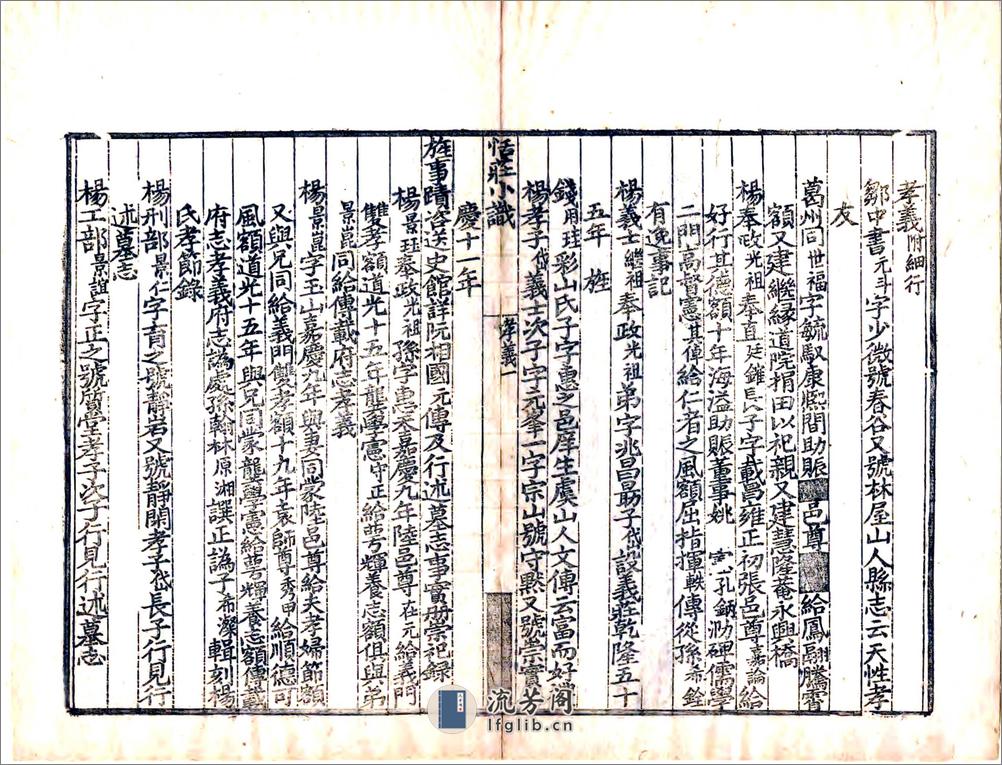 孝義附細行
鄒中書元斗字少微號春谷又號林屋山人縣志云天性孝
友
葛州同世福字毓馭康熙間助賑 邑尊 給鳳翮騰霄
額又建繼緣道院捐田以祀親又建慧隆菴永興橋
楊奉政光祖奉直廷鏞長子字載昌雍正初張邑尊嘉論給
好行其德額十年海溢助賑董事姚 孔鈵泐碑儒學
二門高督憲其倬給仁者之風額屈拈揮軼傳從孫希銓
有逸事記
楊義士繼祖奉政光祖弟字兆昌勗子岱設義莊乾隆五十
五年 旌
錢用珪彩山氏子字惠之邑庠生虞山人文傳云富而好
楊孝子岱義士次子字元峯一字宗山號守默又號崇實
恬莊小識
孝義一
慶十一年
旌事蹟咨送史館詳阮相國元傳及行述墓志事實册崇祀錄
楊景珪奉政光祖孫字惠禾嘉慶九年陸邑尊在元給義門
雙孝額道光十五年龔學憲守正給萼輝養志額俱與弟
景崑同給傳載府志孝義
楊景崑字玉山嘉慶六年與妻同蒙陸邑尊給夫孝婦節額
又與兄同給義門雙孝額十九年袁師尊秀甲給順德可
風額道光十五年與兄同蒙龔學憲給萼輝養志額傳載
府志孝義府志譌慶孫翰林原湘譔正譌子希濚輯刻楊
氏孝節錄
楊刑部景仁字育之號靜岩又號靜閑孝子岱長子行見行
述墓志
楊工部景誼字正之號質堂孝子次子行見行述墓志
流芳阁
lfglib.cn